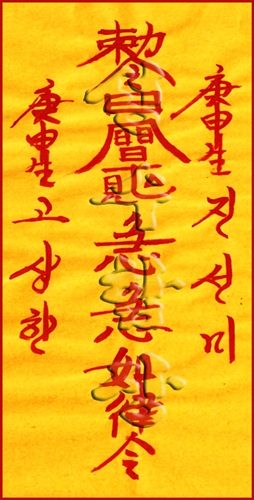 庚申生 진선미
勅令 急急如律令
庚申生 고상한